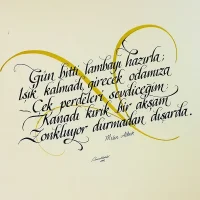 Gün bitti lambayı hazırla;
Işık kalmadı girecek odamıza
Çek perdeleri sevdiceğim
Kanadı kırık bir akşam
Zonkluyor durmadan dışarda.
Metin Altıok